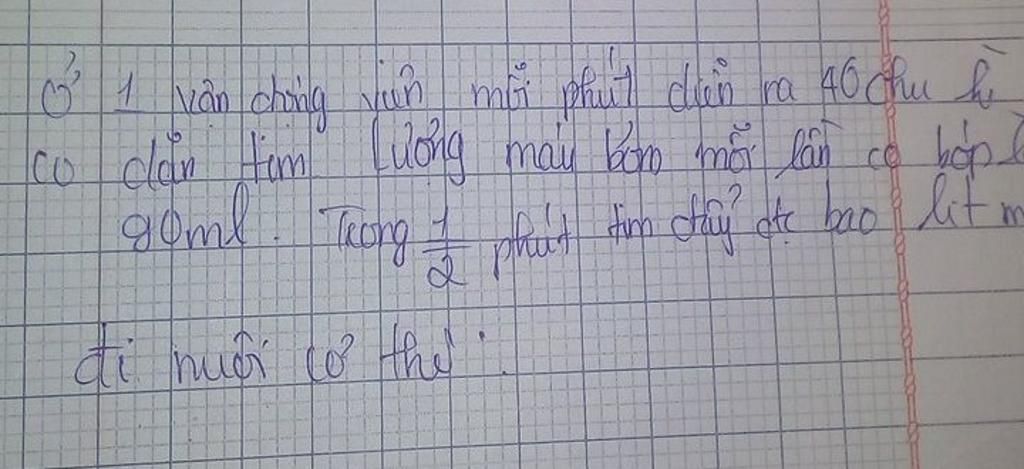 Ở 1 vận động viên mỗi phút diễn ra 40 chu kì
co dãn tim lượng máu bơm mỗi lần co bóp
90ml. Trong 1/2 phút tim đẩy đc bao lit m
đi nuôi cơ thể.